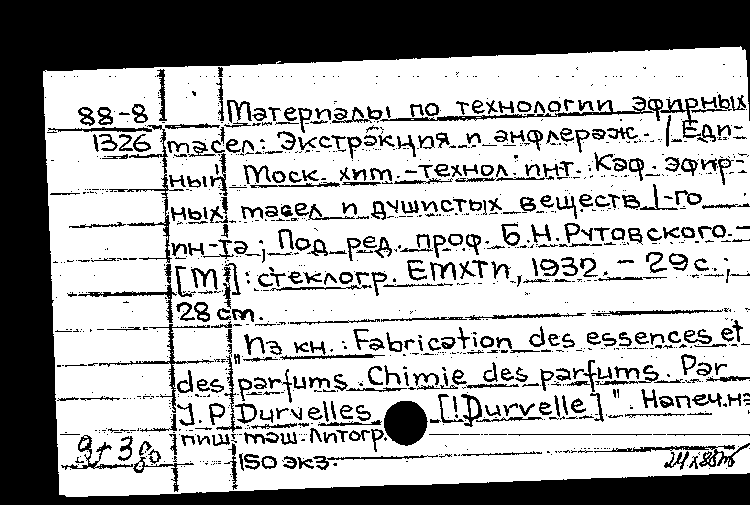 88-8 Материалы по технологии эфирных
1326 масел: Экстракция и анфлераж. / Еди-
ный Моск. хим.-технол. инт. Каф. эфир-
ных масел и душистых веществ I-го
ин-та; Под ред. проф. Б.Н.Рутовского.-
[М.]: стеклогр. ЕМХТИ, 1932. - 29с.;
28 cm.
"Из кн.: Fabrication des essences et
des parfums. Chimie des parfums. Par
J.P Durvelles [!Durvelle]". Напеч.на
пиш. маш. Литогр.
150 экз.